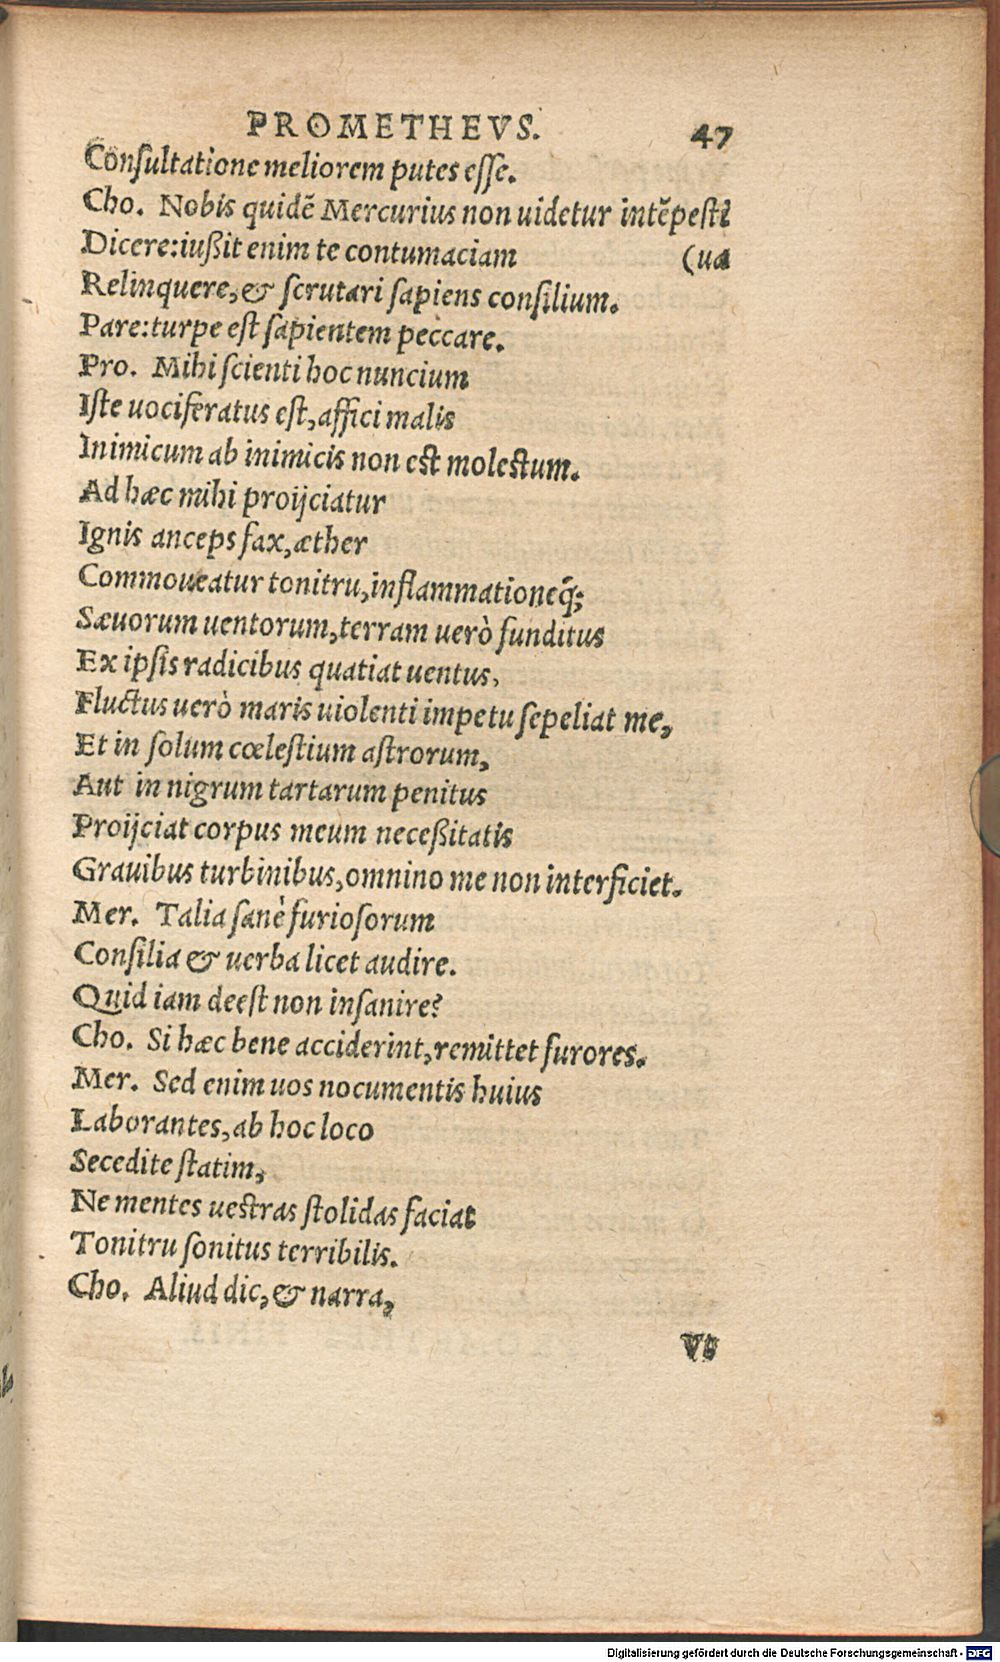 PROMETHEVS. 47
Consultatione meliorem putes esse.
Cho. Nobis quidẽ Mercurius non uidetur intẽpesti
Dicere: iußit enim te contumaciam (ua
Relinquere, & scrutari sapiens consilium.
Pare: turpe est sapientem peccare.
Pro. Mihi scienti hoc nuncium
Iste uociferatus est, affici malis
Inimicum ab inimicis non est molestum.
Ad hæc mihi proijciatur
Ignis anceps fax, æther
Commoueatur tonitru, inflammationeq́;
Sæuorum uentorum, terram uerò funditus
Ex ipsis radicibus quatiat uentus,
Fluctus uerò maris uiolenti impetu sepeliat me,
Et in solum cœlestium astrorum,
Aut in nigrum tartarum penitus
Proijciat corpus meum neceßitatis
Grauibus turbinibus, omnino me non interficiet.
Mer. Talia sanè furiosorum
Consilia & uerba licet audire.
Quid iam deest non insanire?
Cho. Si hæc bene acciderint, remittet furores.
Mer. Sed enim uos nocumentis huius
Laborantes, ab hoc loco
Secedite statim,
Ne mentes uestras stolidas faciat
Tonitru sonitus terribilis.
Cho. Aliud dic, & narra,
Vt
Digitalisierung gefördert durch die Deutsche Forschungsgemeinschaft - DFG